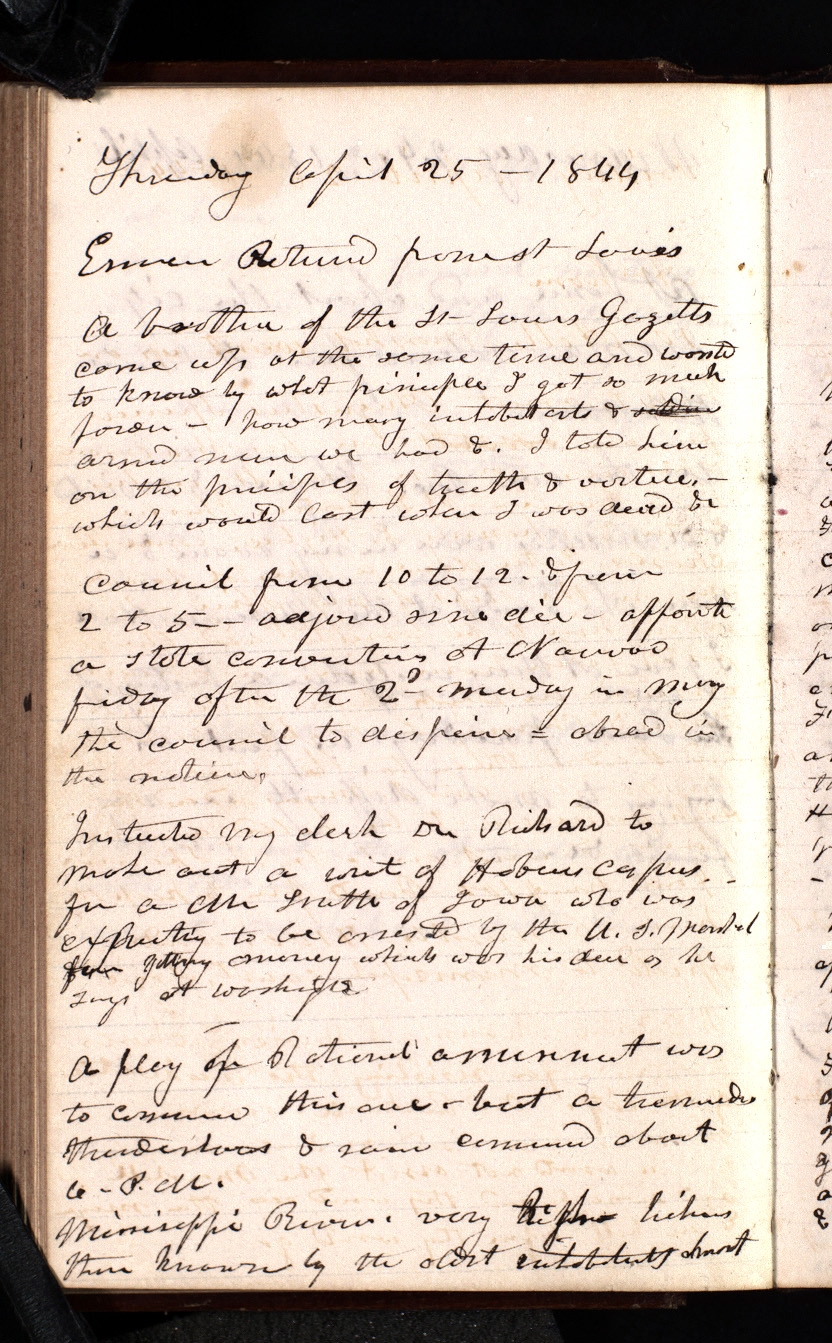 Thursday April 25 - 1844
Emma Returnd from St Louis
A brother of the St Louis Gazette
came up at the same time and wantd
to know by what principle I got so much
power - how many inhabitants &
armd men we had &. I told him
on the principles of truth & virtue. -
which would last when I was dead &c
Council from 10 to 12. & from
2 to 5 - adjournd sine die - appointd
a state convention at Nauvoo
friday after the 2d monday in may
the council to disperse = abroad in
the nation,
Instructed my clerk Dr Richard to
make out a writ of Habeus Capus. -
for a Mr Smith of Iowa who was
expecting to be arrested by the U. S. Marshal
for getting money which was his due as he
says at washington
A play of Rational amusement was
to commence this eve - but a tremendous
thunderstorm & rain commencd about
6 - P.M.
Mississippi River. very high higher
than known by the oldest inhabitants almost